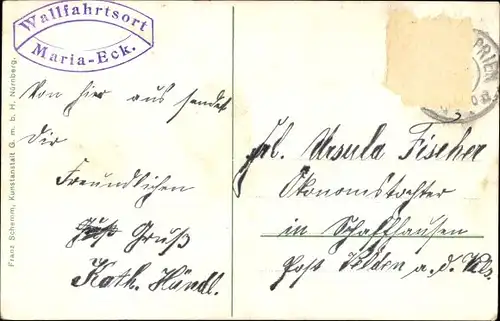 Wallfahrtsort
Maria-Eck.
Von hier aus sendet
Dir
Freundlichen
Gruß
Kath. Hündl.
Franz Schemm, Kunstanstalt G. m. b. H. Nürnberg.
PRIEN
Frl. Ursula Fischer
Ökonomstochter
in Schaffhausen
Post Velden a. d. Vils.